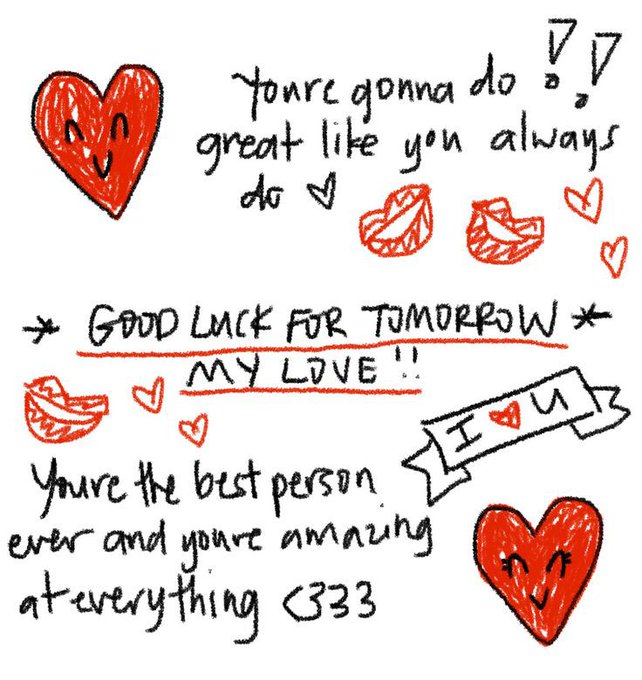 Youre gonna do !!
great like you always
do ♡
* GOOD LUCK FOR TOMORROW *
MY LOVE !!
I ♥ U
Youre the best person
ever and youre amazing
at everything <333